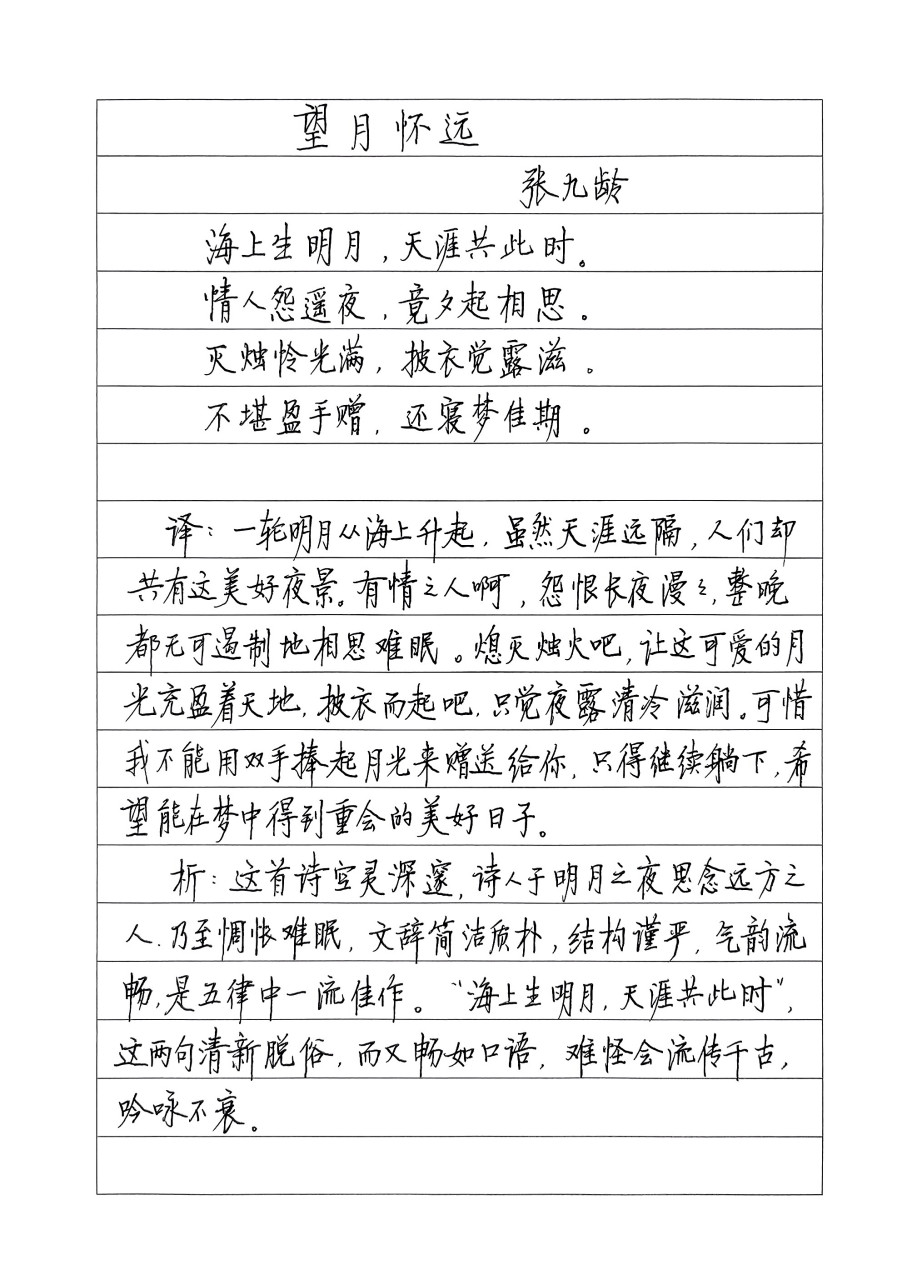 望月怀远
张九龄
海上生明月，天涯共此时。
情人怨遥夜，竟夕起相思。
灭烛怜光满，披衣觉露滋。
不堪盈手赠，还寝梦佳期。
译：一轮明月从海上升起，虽然天涯远隔，人们却
共有这美好夜景。有情之人啊，怨恨长夜漫々，整晚
都无可遏制地相思难眠。熄灭烛火吧，让这可爱的月
光充盈着天地，披衣而起吧，只觉夜露清冷滋润。可惜
我不能用双手捧起月光来赠送给你，只得继续躺下，希
望能在梦中得到重会的美好日子。
析：这首诗空灵深邃，诗人于明月之夜思念远方之
人，乃至惆怅难眠，文辞简洁质朴，结构谨严，气韵流
畅，是五律中一流佳作。“海上生明月，天涯共此时”，
这两句清新脱俗，而又畅如口语，难怪会流传千古，
吟咏不衰。